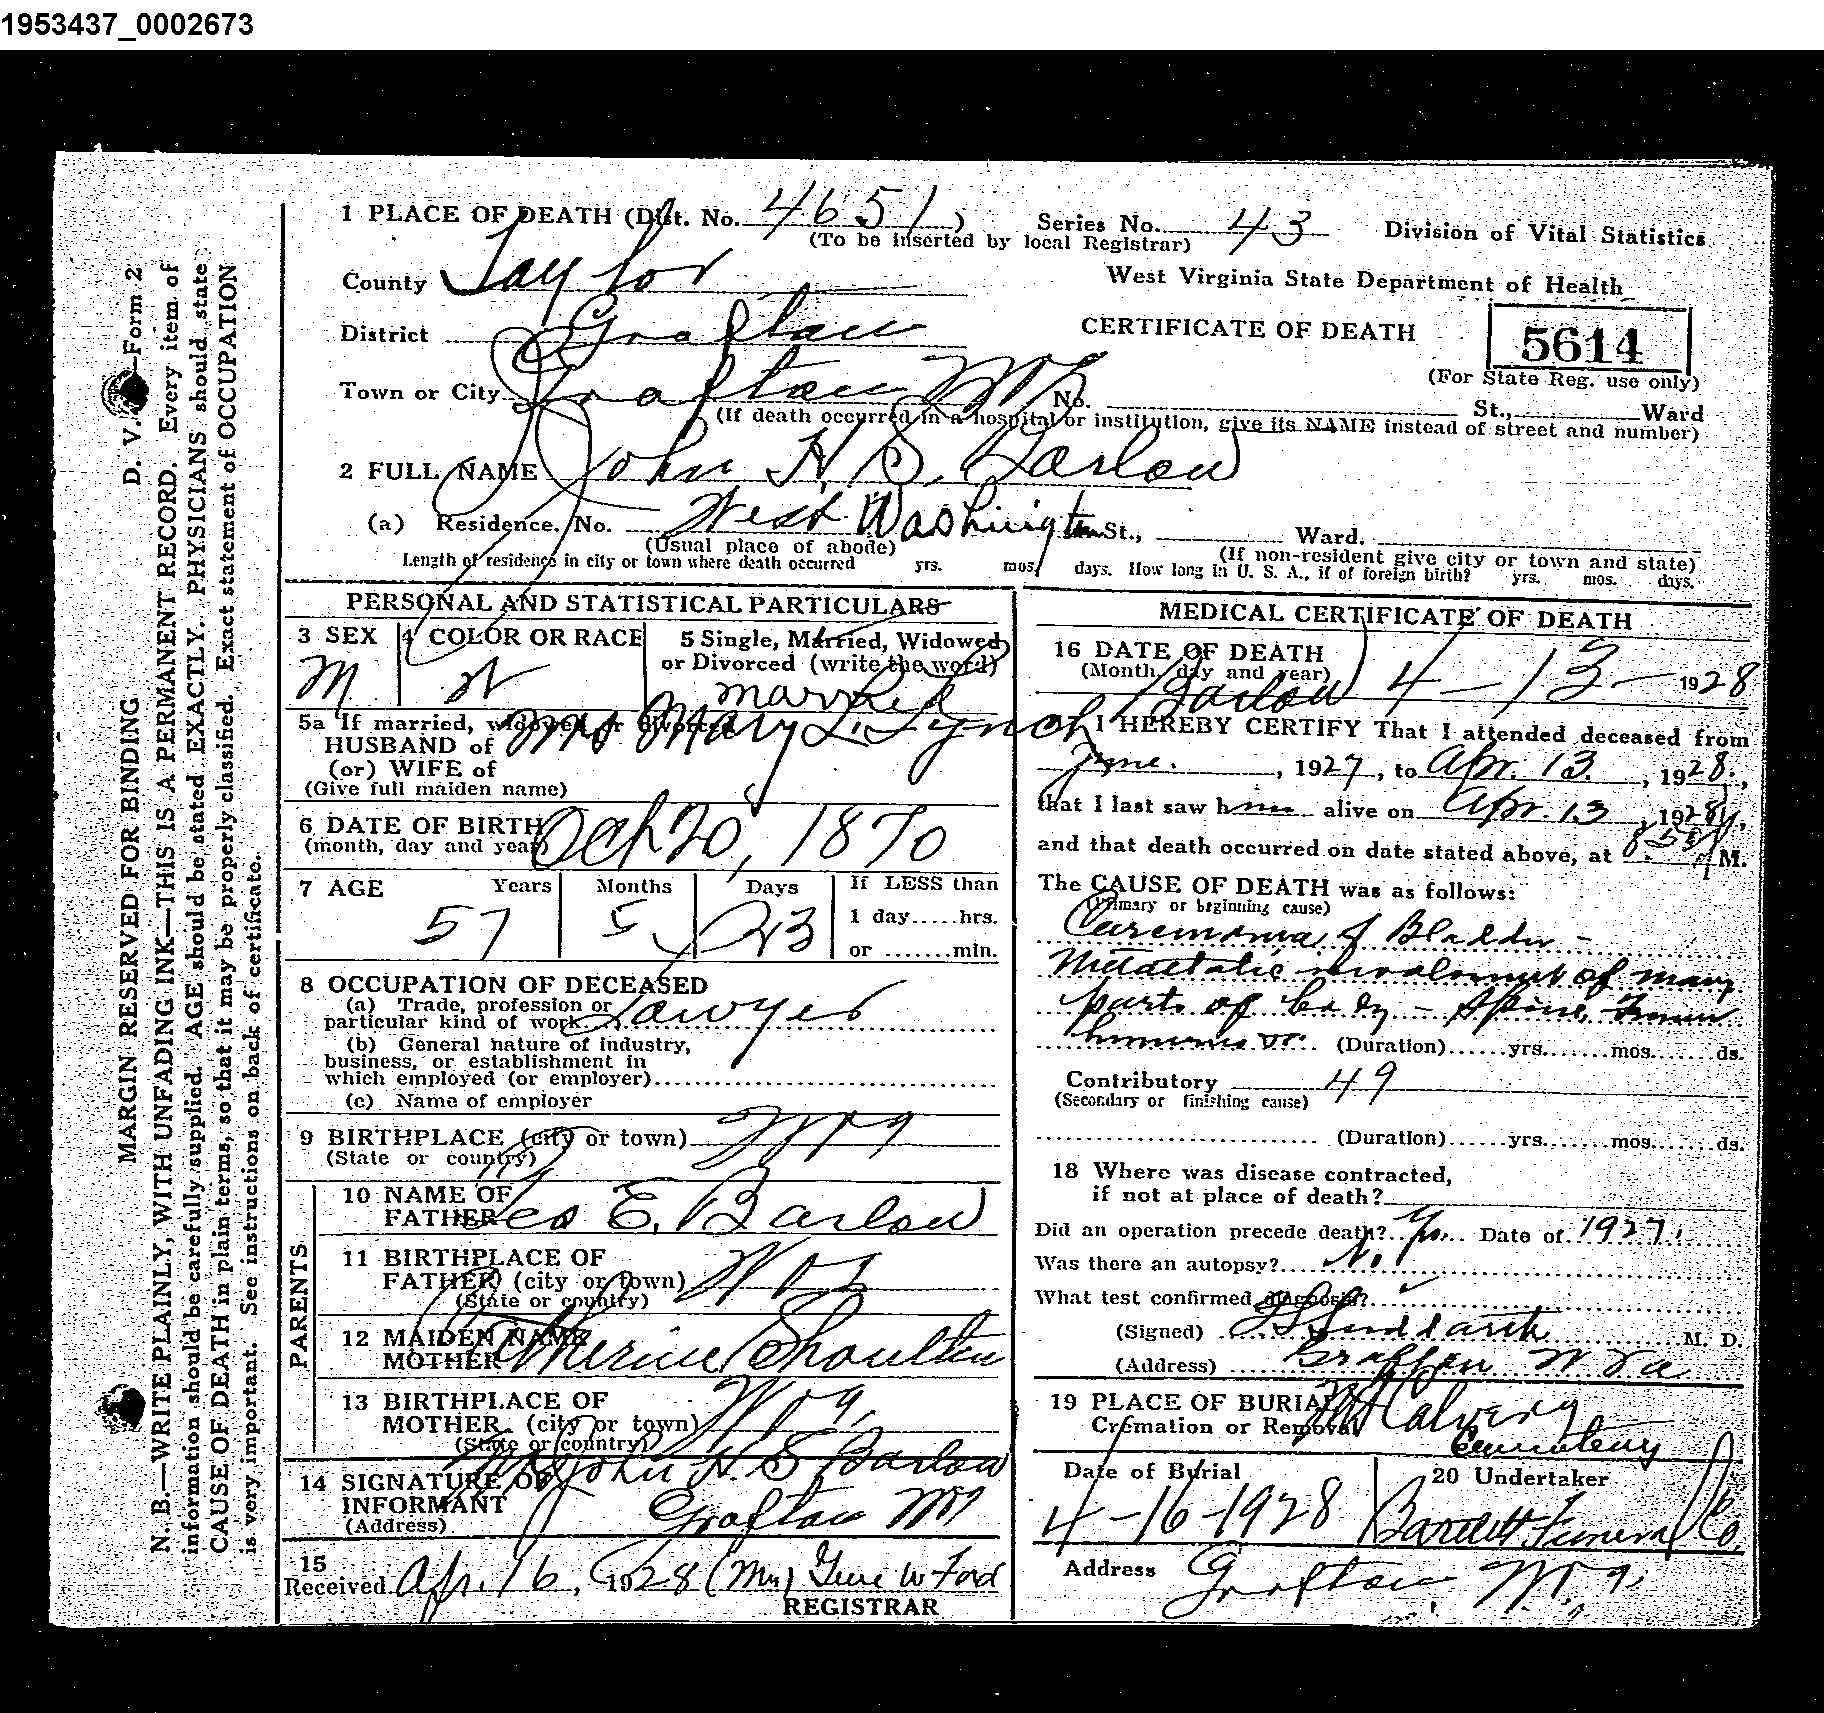 1953437_0002673
1 PLACE OF DEATH (Dist. No. 4651) Series No. 43 Division of Vital Statistics
(To be inserted by local Registrar)
County Taylor West Virginia State Department of Health
District Grafton CERTIFICATE OF DEATH 5614
(For State Reg. use only)
Town or City Grafton W Va No. St., Ward
(If death occurred in a hospital or institution, give its NAME instead of street and number)
2 FULL NAME John H. S. Barlow
(a) Residence. No. West Washington St., Ward.
(Usual place of abode) (If non-resident give city or town and state)
Length of residence in city or town where death occurred yrs. mos. days. How long in U. S. A., if of foreign birth? yrs. mos. days.
PERSONAL AND STATISTICAL PARTICULARS
3 SEX 4 COLOR OR RACE 5 Single, Married, Widowed
or Divorced (write the word)
M W married
5a If married, widowed or divorced
HUSBAND of Mrs Mary L. Lynch Barlow
(or) WIFE of
(Give full maiden name)
6 DATE OF BIRTH Oct 20, 1870
(month, day and year)
7 AGE Years Months Days If LESS than
57 5 23 1 day.....hrs.
or .......min.
8 OCCUPATION OF DECEASED
(a) Trade, profession or
particular kind of work Lawyer
(b) General nature of industry,
business, or establishment in
which employed (or employer)
(c) Name of employer
9 BIRTHPLACE (city or town) W Va
(State or country)
PARENTS
10 NAME OF
FATHER Geo E. Barlow
11 BIRTHPLACE OF
FATHER (city or town) W Va
(State or country)
12 MAIDEN NAME
MOTHER Catherine
13 BIRTHPLACE OF
MOTHER (city or town) W Va,
(State or country)
14 SIGNATURE OF Mrs John H. S Barlow
INFORMANT
(Address) Grafton W Va
15
Received Apr. 16, 1928 (Mrs) W Ford
REGISTRAR
MEDICAL CERTIFICATE OF DEATH
16 DATE OF DEATH
(Month, day and year) 4 - 13 - 1928
I HEREBY CERTIFY That I attended deceased from
June. , 1927, to Apr. 13. , 1928.,
that I last saw him alive on Apr. 13 , 1928,
and that death occurred on date stated above, at M.
The CAUSE OF DEATH was as follows:
(Primary or beginning cause)
Carcinoma of Bladder -
Metastatic involvement of many
parts of body - Spine, Femur
humerus (Duration)......yrs.......mos.......ds.
Contributory 49
(Secondary or finishing cause)
(Duration)......yrs.......mos.......ds.
18 Where was disease contracted,
if not at place of death?
Did an operation precede death? Yes. Date of 1927.
Was there an autopsy? No
What test confirmed diagnosis?
(Signed) M. D.
(Address) Grafton W Va
19 PLACE OF BURIAL Mt Calvery
Cremation or Removal Cemetery
Date of Burial 20 Undertaker
4-16-1928 Bartlett Funeral Co.
Address Grafton W Va.
D. V. S.—Form 2
MARGIN RESERVED FOR BINDING
N. B.—WRITE PLAINLY, WITH UNFADING INK—THIS IS A PERMANENT RECORD. Every item of
information should be carefully supplied. AGE should be stated EXACTLY. PHYSICIANS should state
CAUSE OF DEATH in plain terms, so that it may be properly classified. Exact statement of OCCUPATION
is very important. See instructions on back of certificate.